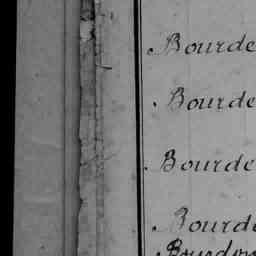 Bourde
Bourde
Bourde
Bourde
Bourdon